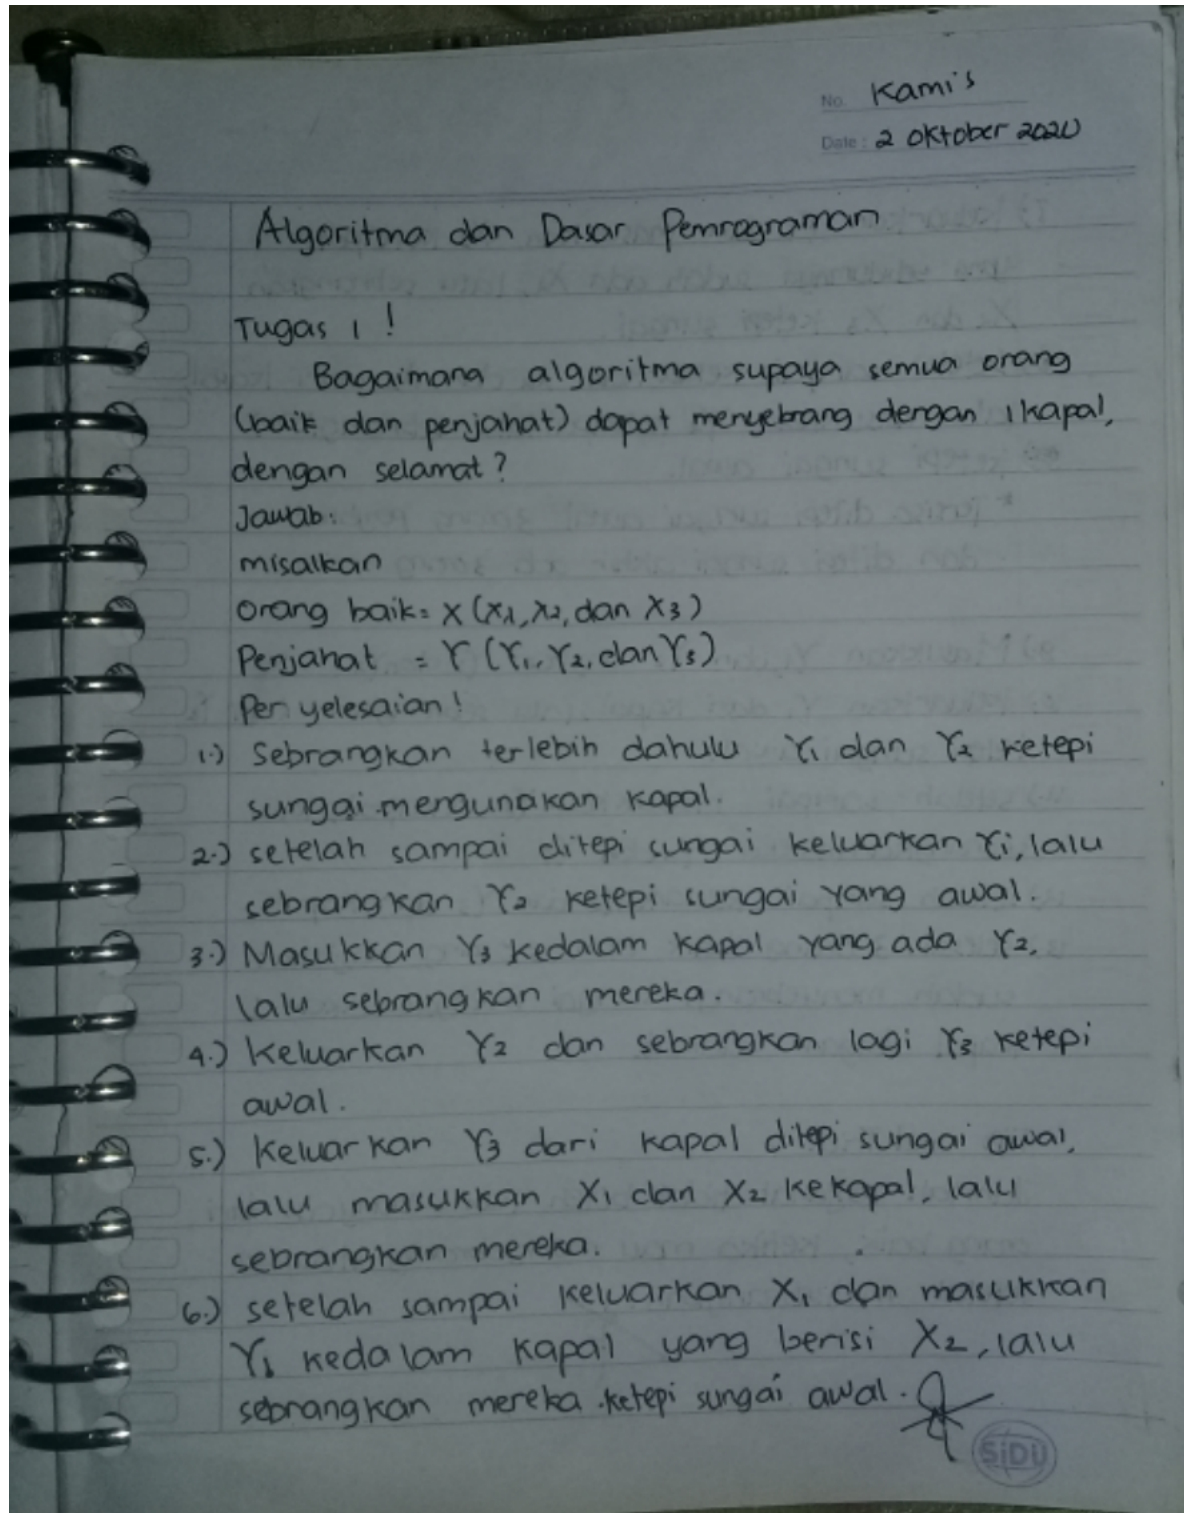 No. Kami's
Date: 2 Oktober 2020
Algoritma dan Dasar Pemrograman
Tugas 1 !
Bagaimana algoritma supaya semua orang
(baik dan penjahat) dapat menyebrang dengan 1 kapal,
dengan selamat?
Jawab:
misalkan
Orang baik = X (X1, X2, dan X3)
Penjahat = Y (Y1, Y2, dan Y3)
Penyelesaian !
1.) Sebrangkan terlebih dahulu Y1 dan Y2 ketepi
sungai mengunakan kapal.
2.) setelah sampai ditepi sungai keluarkan Y1, lalu
sebrangkan Y2 ketepi sungai yang awal.
3.) Masukkan Y3 kedalam kapal yang ada Y2,
lalu sebrangkan mereka.
4.) Keluarkan Y2 dan sebrangkan lagi Y3 ketepi
awal.
5.) Keluarkan Y3 dari kapal ditepi sungai awal,
lalu masukkan X1 dan X2 kekapal, lalu
sebrangkan mereka.
6.) setelah sampai keluarkan X1 dan masukkan
Y1 kedalam kapal yang berisi X2, lalu
sebrangkan mereka ketepi sungai awal.
SIDU